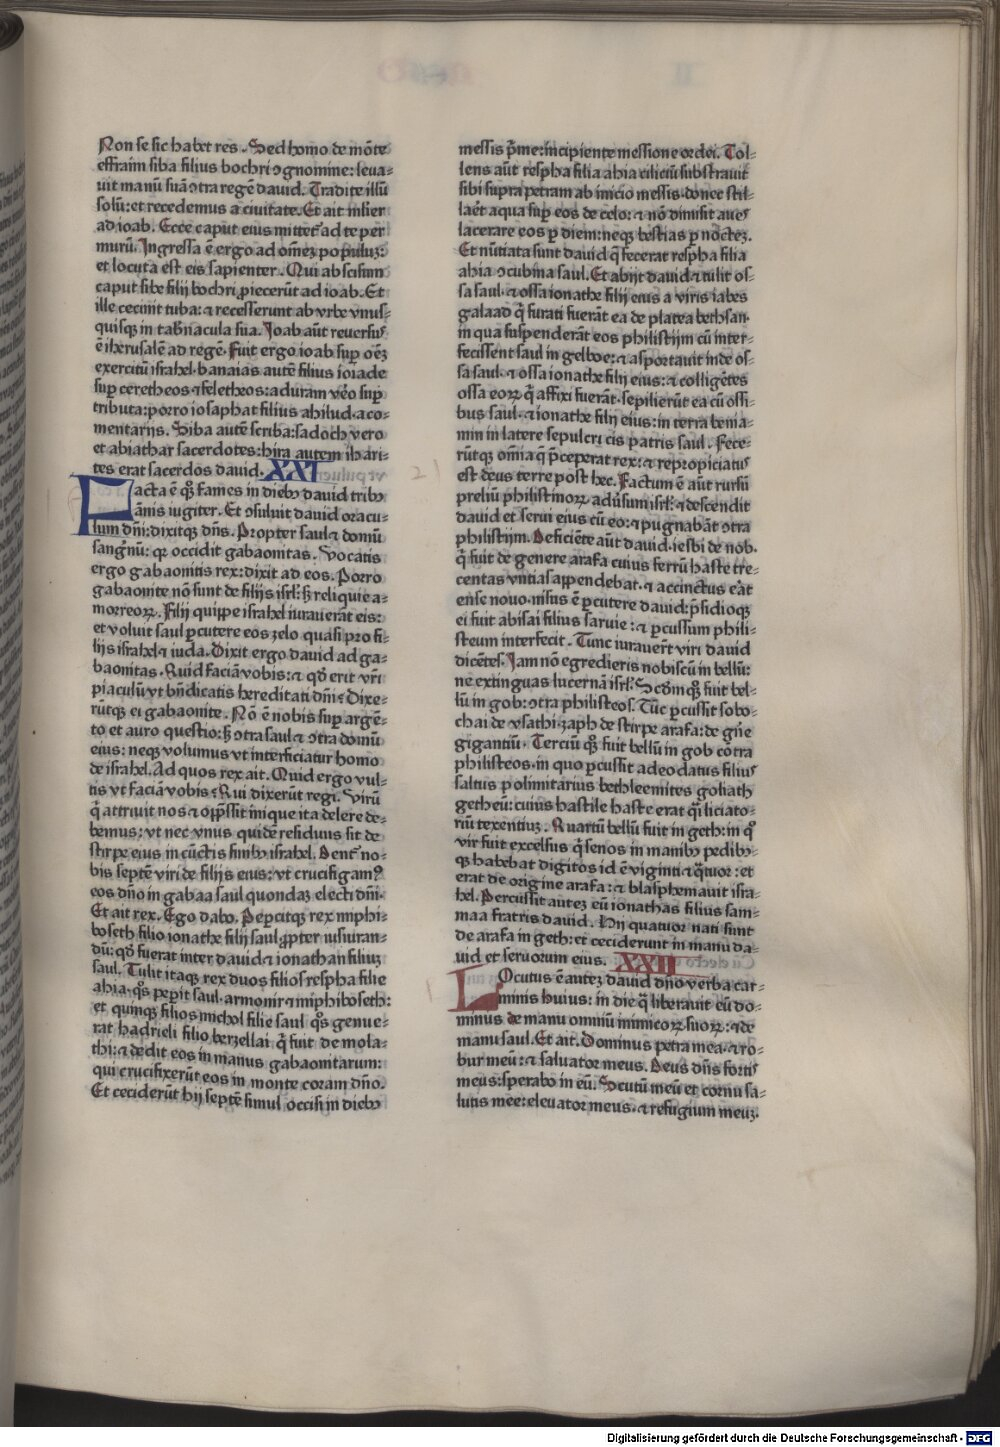 Non se sic habet res. Sed homo de mōte
effraim siba filius bochri ↄgnomine: leua-
uit manū suā ↄtra regē dauid. Tradite illū
solū: et recedemus a ciuitate. Et ait mlier
ad ioab. Ecce caput eius mittet̄ ad te per
murū. Ingressa ē ergo ad omēꝫ populuꝫ:
et locuta est eis sapienter. Qui abscisum
caput sibe filij bochri ꝓiecerūt ad ioab. Et
ille cecinit tuba: ⁊ recesserunt ab vrbe vnus-
quisqꝫ in tab̄nacula sua. Ioab aūt reuersus
ē iherusalē ad regē. Fuit ergo ioab suꝑ oēꝫ
exercitū israhel. banaias autē filius ioiade
suꝑ ceretheos ⁊ feletheos: aduram v̄o suꝑ
tributa: porro iosaphat filius ahilud. a co-
mentarijs. Siba autē scriba: sadoch vero
et abiathar sacerdotes: hira autem ihari-
tes erat sacerdos dauid. XXI
Facta ē qꝫ fames in diebꝫ dauid tribꝫ
ānis iugiter. Et ↄsuluit dauid oracu-
lum dn̄i: dixitqꝫ dn̄s. Propter saul ⁊ domū
sanḡnū: qꝛ occidit gabaonitas. Vocatis
ergo gabaonitis rex: dixit ad eos. Porro
gabaonite nō sunt de filijs isrl: sꝫ reliquie a-
morreoꝝ. Filij quippe israhel iurauerāt eis:
et voluit saul ꝑcutere eos zelo quasi pro fi-
lijs israhel ⁊ iuda. Dixit ergo dauid ad ga-
baonitas. Quid faciā vobis: ⁊ qd̄ erit vr̄i
piaculū vt bn̄dicatis hereditati dn̄i? Dixe-
rūtqꝫ ei gabaonite. Nō ē nobis suꝑ argē-
to et auro questio: sꝫ ↄtra saul ⁊ ↄtra domū
eius: neqꝫ volumus vt interficiatur homo
de israhel. Ad quos rex ait. Quid ergo vul-
tis vt faciā vobis? Qui dixerūt regi. Virū
q̄ attriuit nos ⁊ opp̄ssit inique ita delere de-
bemus: vt nec vnus quidē residuus sit de
stirpe eius in cūctis finibꝫ israhel. Dent̄ no-
bis septē viri de filijs eius: vt crucifigam⁹
eos dn̄o in gabaa saul quondaꝫ electi dn̄i.
Et ait rex. Ego dabo. Peꝑcitqꝫ rex miphi-
boseth filio ionathe filij saul ꝓpter iusiuran-
dū: qd̄ fuerat inter dauid ⁊ ionathan filiuꝫ
saul. Tulit itaqꝫ rex duos filios respha filie
ahia. q̄s peꝑit saul. armoni ⁊ miphiboseth:
et quinqꝫ filios michol filie saul q̄s genue-
rat hadrieli filio berzellai q̄ fuit de mola-
thi: ⁊ dedit eos in manus gabaonitarum:
qui crucifixerūt eos in monte coram dn̄o.
Et ceciderūt hij septē simul occisi in diebꝫ
messis p̄me: incipiente messione ordei. Tol-
lens aūt respha filia ahia ciliciū substrauit
sibi supra petram ab inicio messis. donec stil-
laēt aqua suꝑ eos de celo: ⁊ nō dimisit aues
lacerare eos ꝑ diem: neqꝫ bestias ꝑ noctēꝫ.
Et nūtiata sunt dauid q̄ fecerat respha filia
ahia ↄcubina saul. Et abijt dauid ⁊ tulit os-
sa saul. ⁊ ossa ionathe filij eius a viris iabes
galaad q̄ furati fuerāt ea de platea bethsan.
in qua suspenderāt eos philistijm cū inter-
fecissent saul in gelboe: ⁊ asportauit inde os-
sa saul. ⁊ ossa ionathe filij eius: ⁊ colligētes
ossa eoꝝ q̄ affixi fuerāt. sepilierūt ea cū ossi-
bus saul. ⁊ ionathe filij eius: in terra benia-
min in latere sepulcri cis patris saul. Fece-
rūtqꝫ om̄ia q̄ p̄ceperat rex: ⁊ repropiciatus
est deus terre post hec. Factum ē aūt rursū
preliū philistinoꝝ adūsum isrl: ⁊ descendit
dauid et serui eius cū eo: ⁊ pugnabāt ↄtra
philistijm. Deficiēte aūt dauid. iesbi de nob.
q̄ fuit de genere arafa cuius ferrū haste tre-
centas vntias appendebat. ⁊ accinctus eāt
ense nouo. nisus ē ꝑcutere dauid: p̄sidioqꝫ
ei fuit abisai filius saruie: ⁊ ꝑcussum phili-
steum interfecit. Tunc iurauer̄t viri dauid
dicētes. Iam nō egredieris nobiscū in bellū:
ne extinguas lucernā isrl. Scd̄m qꝫ fuit bel-
lū in gob: ↄtra philisteos. Tūc ꝑcussit sobo-
chai de vsathi. zaph de stirpe arafa: de gn̄e
gigantiū. Terciū qꝫ fuit bellū in gob cōtra
philisteos. in quo ꝑcussit adeodatus filius
saltus polimitarius bethleemites goliath
getheū: cuius hastile haste erat q̄si liciato-
riū texentiuꝫ. Quartū bellū fuit in geth: in q̄
vir fuit excelsus q̄ senos in manibꝫ pedibꝫ-
qꝫ habebat digitos id ē viginti ⁊ q̄tuor: et
erat de origine arafa: ⁊ blasphemauit isra-
hel. Percussit auteꝫ eū ionathas filius sam-
maa fratris dauid. Hij quatuor nati sunt
de arafa in geth: et ceciderunt in manu da-
uid et seruorum eius. XXII
Locutus ē auteꝫ dauid dn̄o verba car-
minis huius: in die q̄ liberauit eū do-
minus de manu omniū inimicoꝝ suoꝝ: ⁊ de
manu saul. Et ait. Dominus petra mea. ⁊ ro-
bur meū: ⁊ saluator meus. Deus dn̄s fortis
meus: sperabo in eū. Scutū meū et cornu sa-
lutis mee: eleuator meus. ⁊ refugium meuꝫ.
21
Digitalisierung gefördert durch die Deutsche Forschungsgemeinschaft - DFG